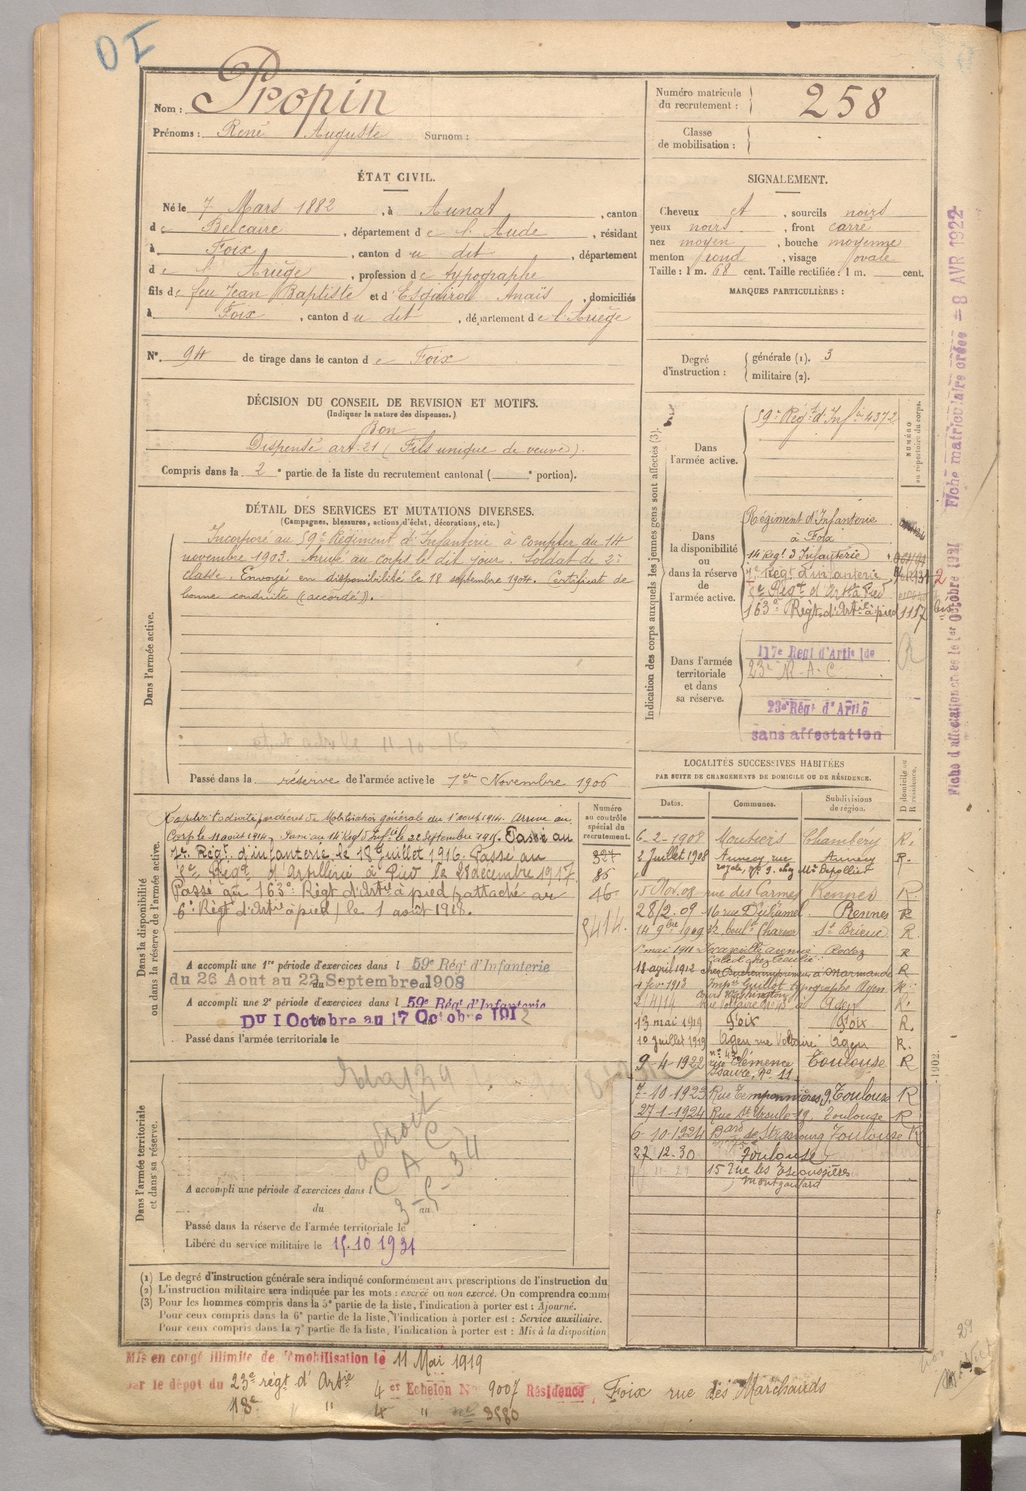 Nom : Propin
Prénoms : René Auguste Surnom :
ÉTAT CIVIL.
Né le 7 Mars 1882, à Aunat, canton
de Belcaire, département de l'Aude, résidant
à Foix, canton du dit, département
de l'Ariège, profession de typographe
fils de feu Jean Baptiste et d'Esquirou Anaïs, domiciliés
à Foix, canton du dit, département de l'Ariège
N°. 94 de tirage dans le canton de Foix
DÉCISION DU CONSEIL DE REVISION ET MOTIFS.
(Indiquer la nature des dispenses.)
Bon
Dispensé art. 21 (Fils unique de veuve).
Compris dans la 2e partie de la liste du recrutement cantonal ( e portion).
DÉTAIL DES SERVICES ET MUTATIONS DIVERSES.
(Campagnes, blessures, actions d'éclat, décorations, etc.)
Dans l'armée active.
Incorporé au 59e Régiment d'Infanterie à compter du 14
novembre 1903. Arrivé au corps le dit jour. Soldat de 2e
classe. Envoyé en disponibilité le 18 septembre 1904. Certificat de
bonne conduite (accordé).
Passé dans la réserve de l'armée active le 1er Novembre 1906
Numéro
au contrôle
spécial du
recrutement.
Dans la disponibilité
ou dans la réserve de l'armée active.
de Mobilisation générale du 1 août 1914. Arrivé au
Corps le 11 août 1914. Passé au 14e Régt Inftie le 22 septembre 1915. Passé au
Régt d'infanterie le 18 Juillet 1916. Passé au
Régt d'Artillerie à Pied le 28 décembre 1917.
Passé au 163e Régt d'Artie à pied (attaché au
6e Régt d'Artie à pied) le 1 août 1918.
46
A accompli une 1re période d'exercices dans l 59e Régt d'Infanterie
du 26 Aout au 22 Septembre 1908
A accompli une 2e période d'exercices dans l 59e Régt d'Infanterie
Du 1 Octobre au 17 Octobre 1912
Passé dans l'armée territoriale le
Dans l'armée territoriale
et dans sa réserve.
A accompli une période d'exercices dans l
du au
Passé dans la réserve de l'armée territoriale le
Libéré du service militaire le 15.10 1931
(1) Le degré d'instruction générale sera indiqué conformément aux prescriptions de l'instruction du
(2) L'instruction militaire sera indiquée par les mots : exercé ou non exercé. On comprendra comme
(3) Pour les hommes compris dans la 5e partie de la liste, l'indication à porter est : Ajourné.
Pour ceux compris dans la 6e partie de la liste, l'indication à porter est : Service auxiliaire.
Pour ceux compris dans la 7e partie de la liste, l'indication à porter est : Mis à la disposition
Numéro matricule
du recrutement : 258
Classe
de mobilisation :
SIGNALEMENT.
Cheveux et, sourcils noirs
yeux noirs, front carré
nez moyen, bouche moyenne
menton rond, visage ovale
Taille : 1 m. 68 cent. Taille rectifiée : 1 m. cent.
MARQUES PARTICULIÈRES :
Degré
d'instruction :
générale (1). 3
militaire (2).
Indication des corps auxquels les jeunes gens sont affectés (3).
NUMÉRO
au répertoire du corps.
Dans
l'armée active.
59e Régt d'Inf ie 4372
Dans
la disponibilité
ou
dans la réserve
de
l'armée active.
Régiment d'Infanterie
à Foix
14 Régt d'Infanterie
Régt d'infanterie
Régt d'Artie à Pied
163e Régt d'Artie à pied 1157
Dans l'armée
territoriale
et dans
sa réserve.
117e Regt d'Artie lde
23e R.A.C.
23e Régt d'Artie
sans affectation
LOCALITÉS SUCCESSIVES HABITÉES
PAR SUITE DE CHANGEMENTS DE DOMICILE OU DE RÉSIDENCE.
Dates. Communes. Subdivisions
de région.
D domicile ou
R résidence.
6-2-1908 Moutiers Chambéry R.
2 Juillet 1908 Annecy rue Annecy R.
rue des Carmes Rennes R.
28/2.09 16 rue Duhamel Rennes R
St Brieuc R.
Rodez R
18 avril 1912 Marmande R
Guillot typographe Agen R.
Agen R.
13 mai 1919 Foix Foix R.
10 juillet 1919 Agen rue Voltaire Agen R.
9-4-1922 rue Clémence Toulouse R
Isaure, n° 11
7-10-1923 Rue Temponnières, 9, Toulouse R
27-1-1924 Rue St Ursule 19. Toulouse R
6-10-1924 Bard de Strasbourg Toulouse R
27.12.30 Toulouse
15 rue les
Fiche d'affectation créée le 1er Octobre 1921 Fiche matriculaire créée = 8 AVR 1922
1902.
Mis en congé illimité de démobilisation le 11 Mai 1919
par le dépot du 23e régt d'Artie 4 et Echelon N° 9007 Résidence, Foix rue des Marchands
18e " " 4 " n° 3580